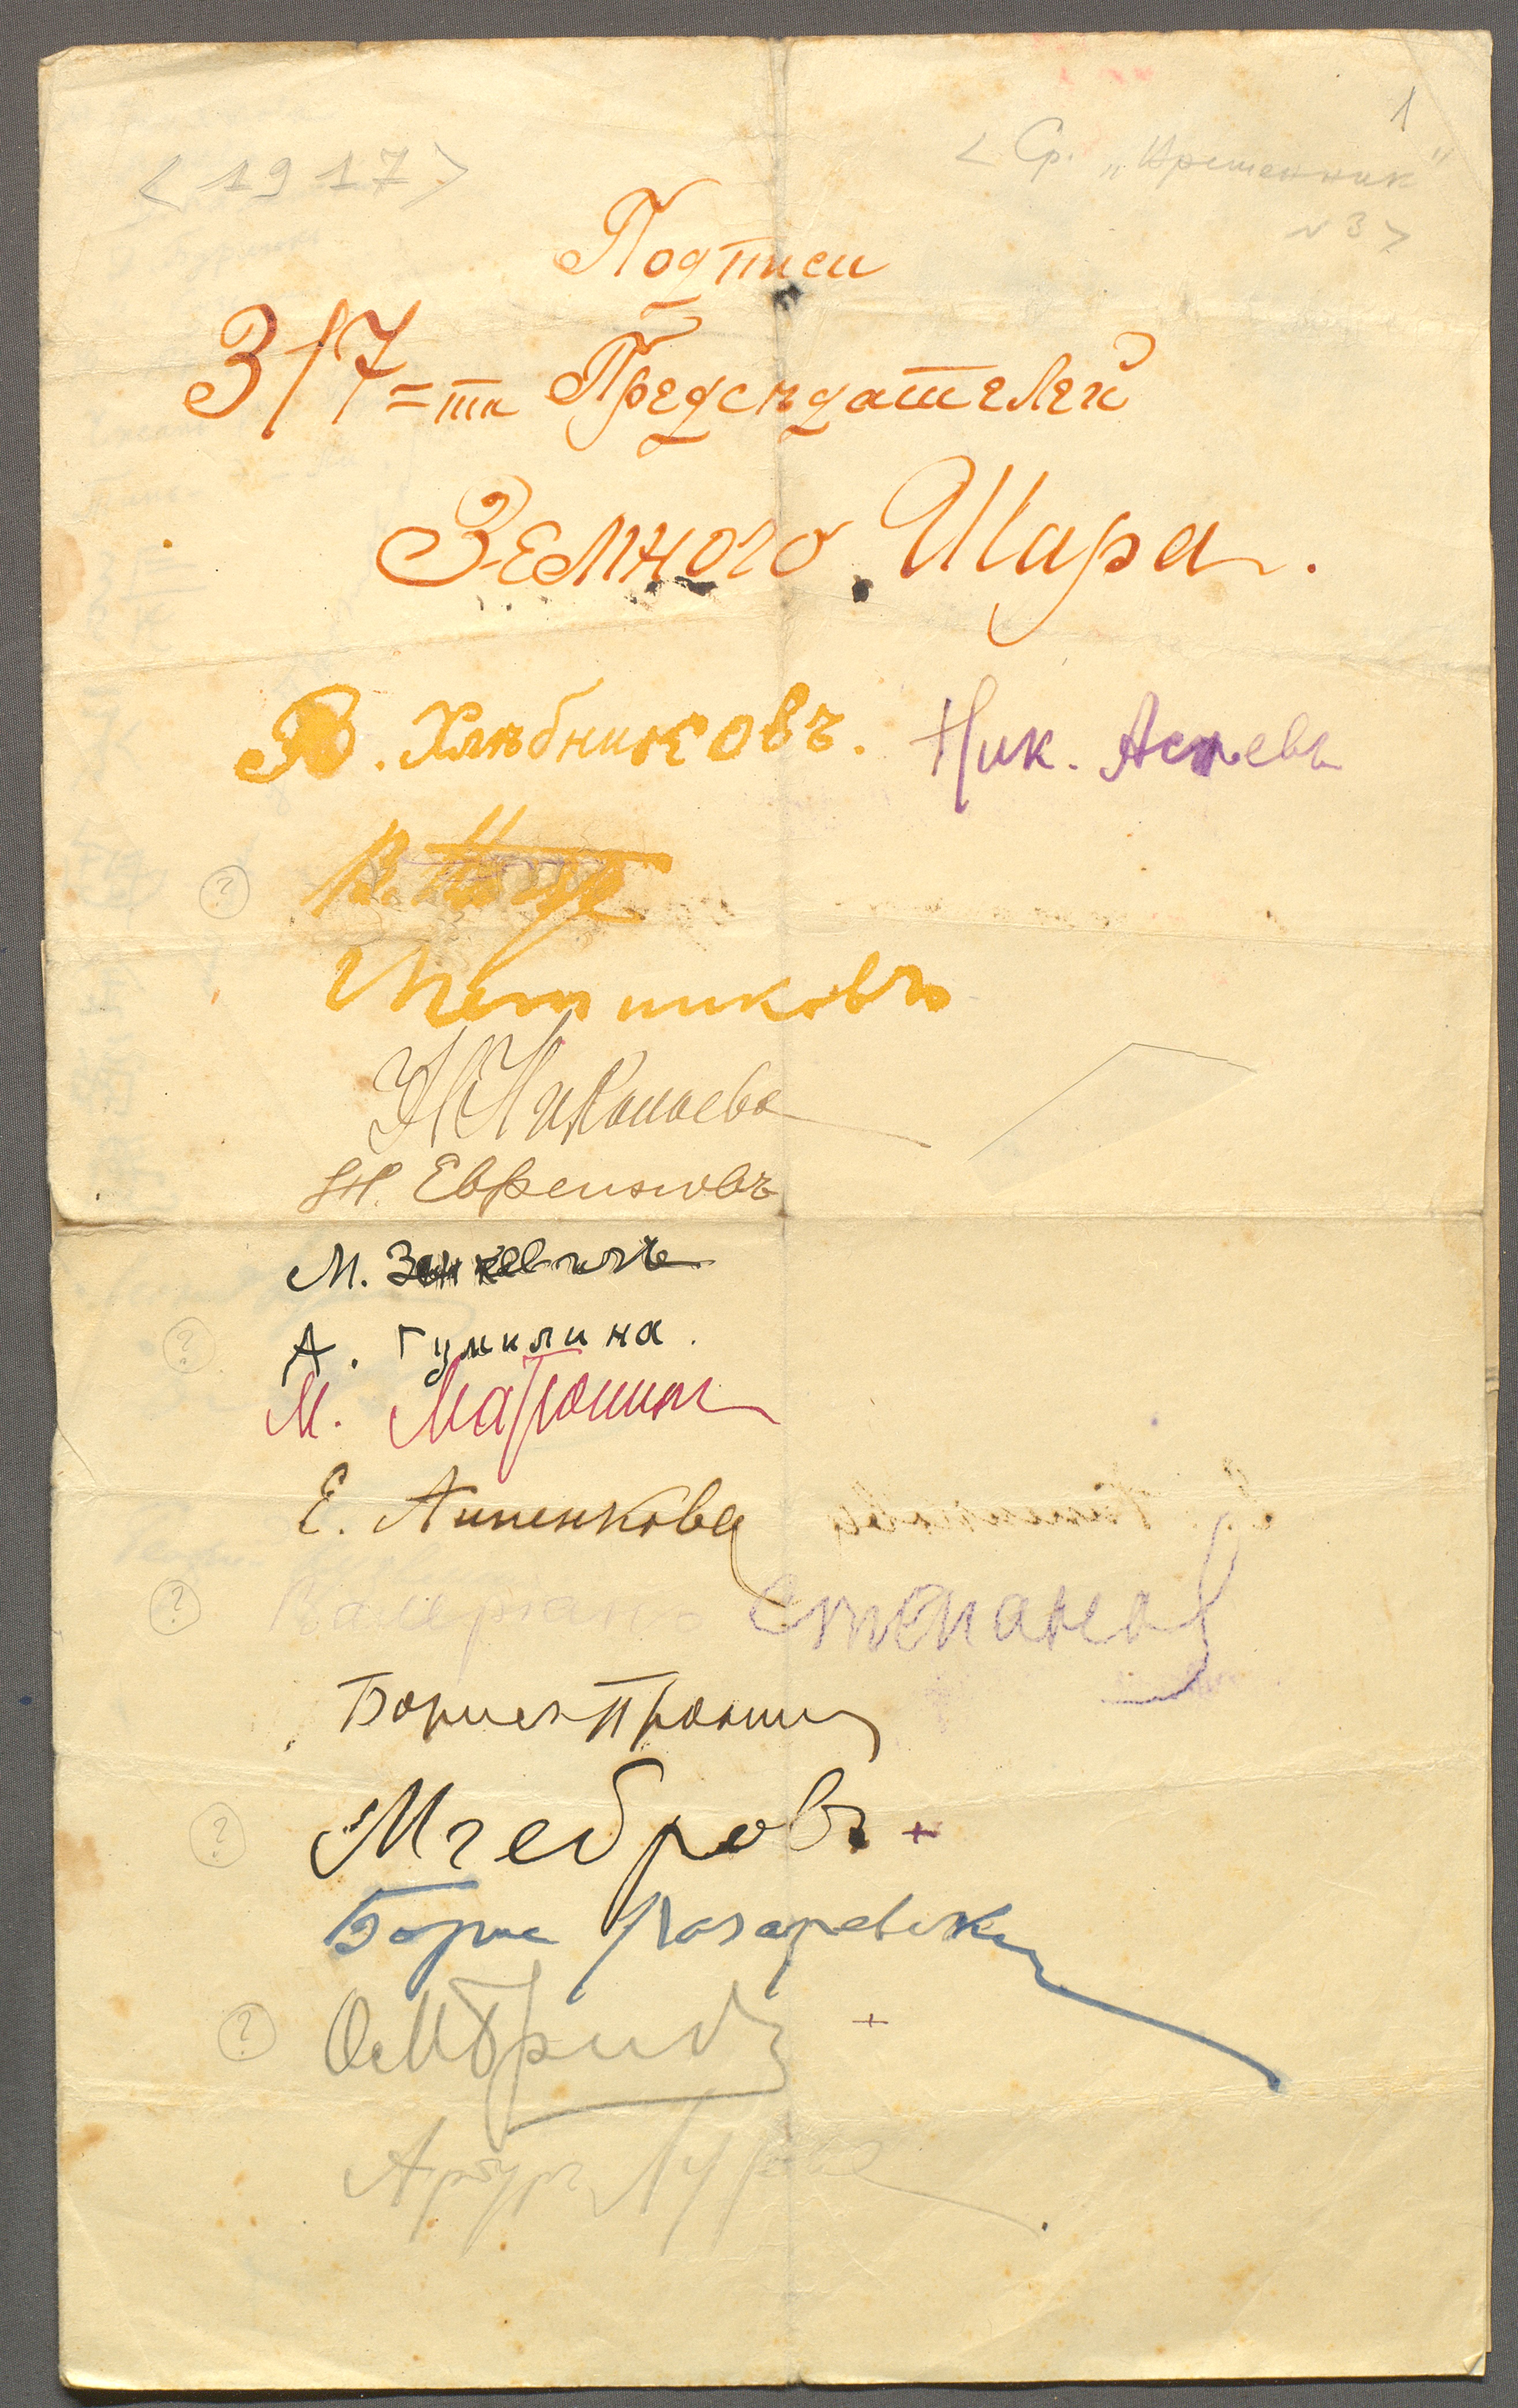 1
<1917>
<Ср. „Временник"
№ 3>
Подписи
317=ти Предсѣдателей
Земного Шара.
В. Хлѣбниковъ. Ник. Асѣевъ
?
Петниковъ
Н Николаева
Н. Евреиновъ
М. Зенкевичъ
?
А. Гумилина.
М. Матюшин
Е. Анненкова
?
Валериан Степанов
Борисъ Пронин
?
Мгебровъ +
Борис Лазаревский
? +
Артур Лурье